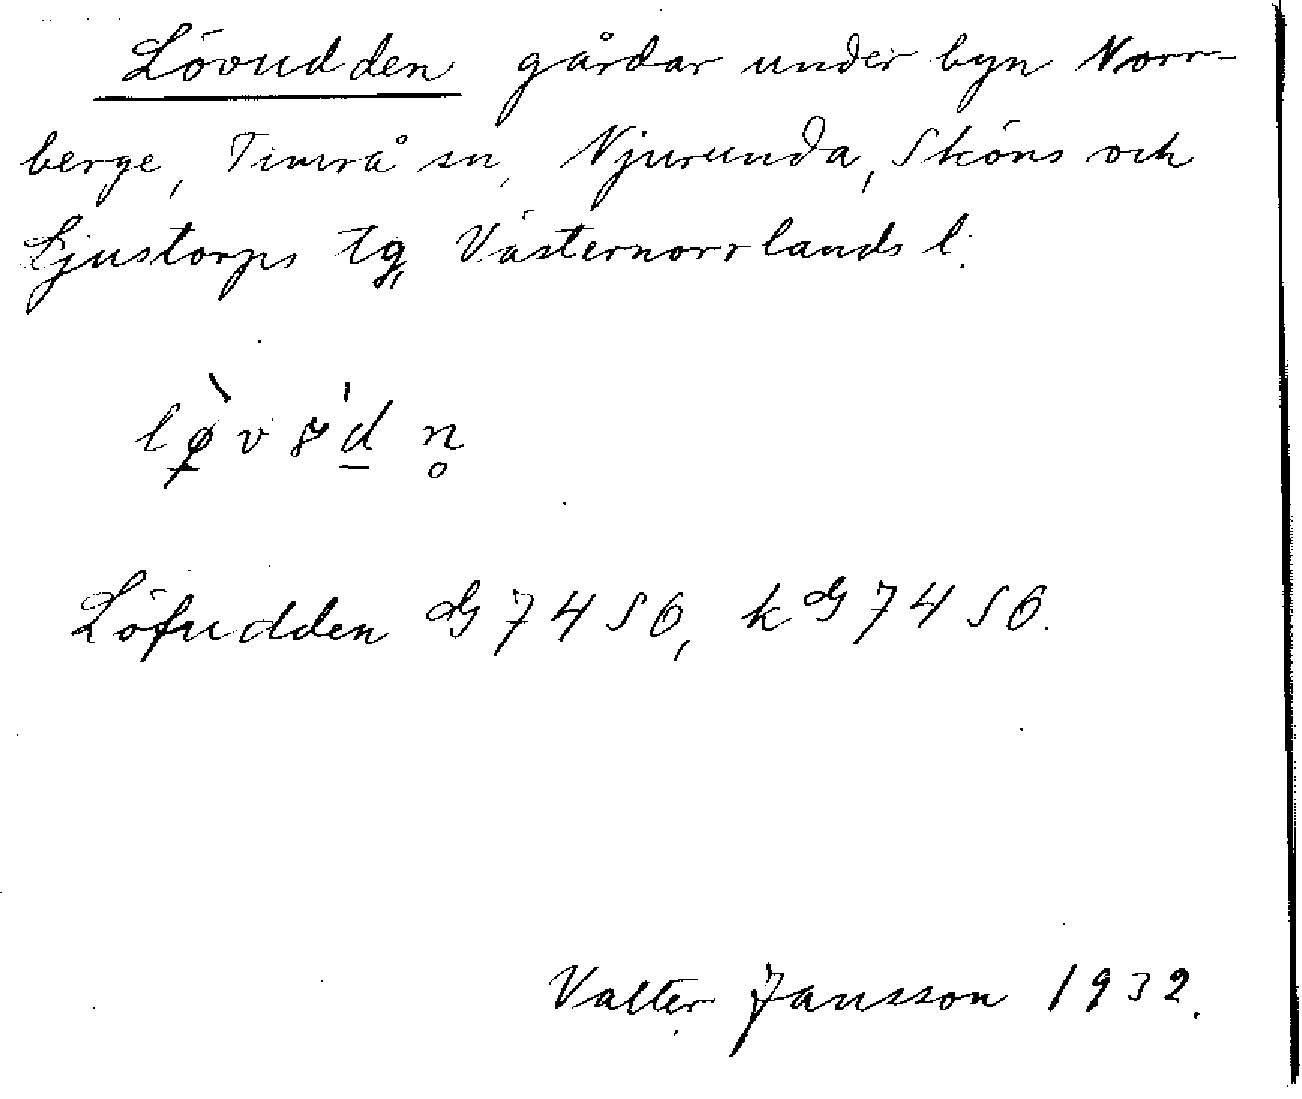 Lövudden gårdar under byn Norr-
berge, Timrå sn, Njurunda, Sköns och
Ljustorps tg, Västernorrlands l.
Löfudden G 74 S6, k G 74 S6.
Valter Jansson 1932.